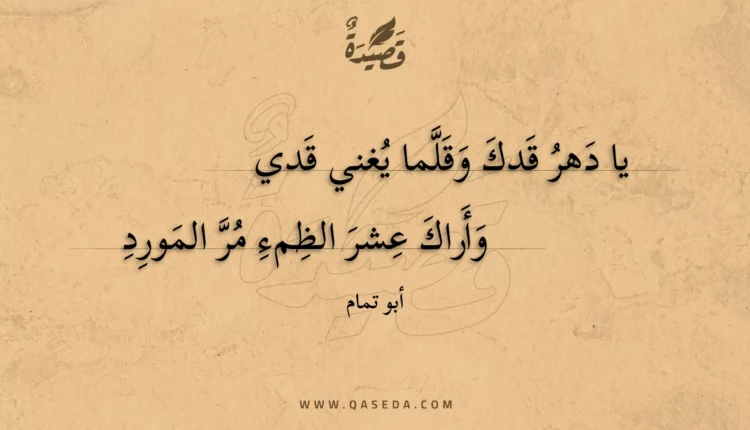 قَصِيدَةٌ
يا دَهرُ قَدكَ وَقَلَّما يُغني قَدي
وَأَراكَ عِشرَ الظِمءِ مُرَّ المَورِدِ
أبو تمام
WWW.QASEDA.COM